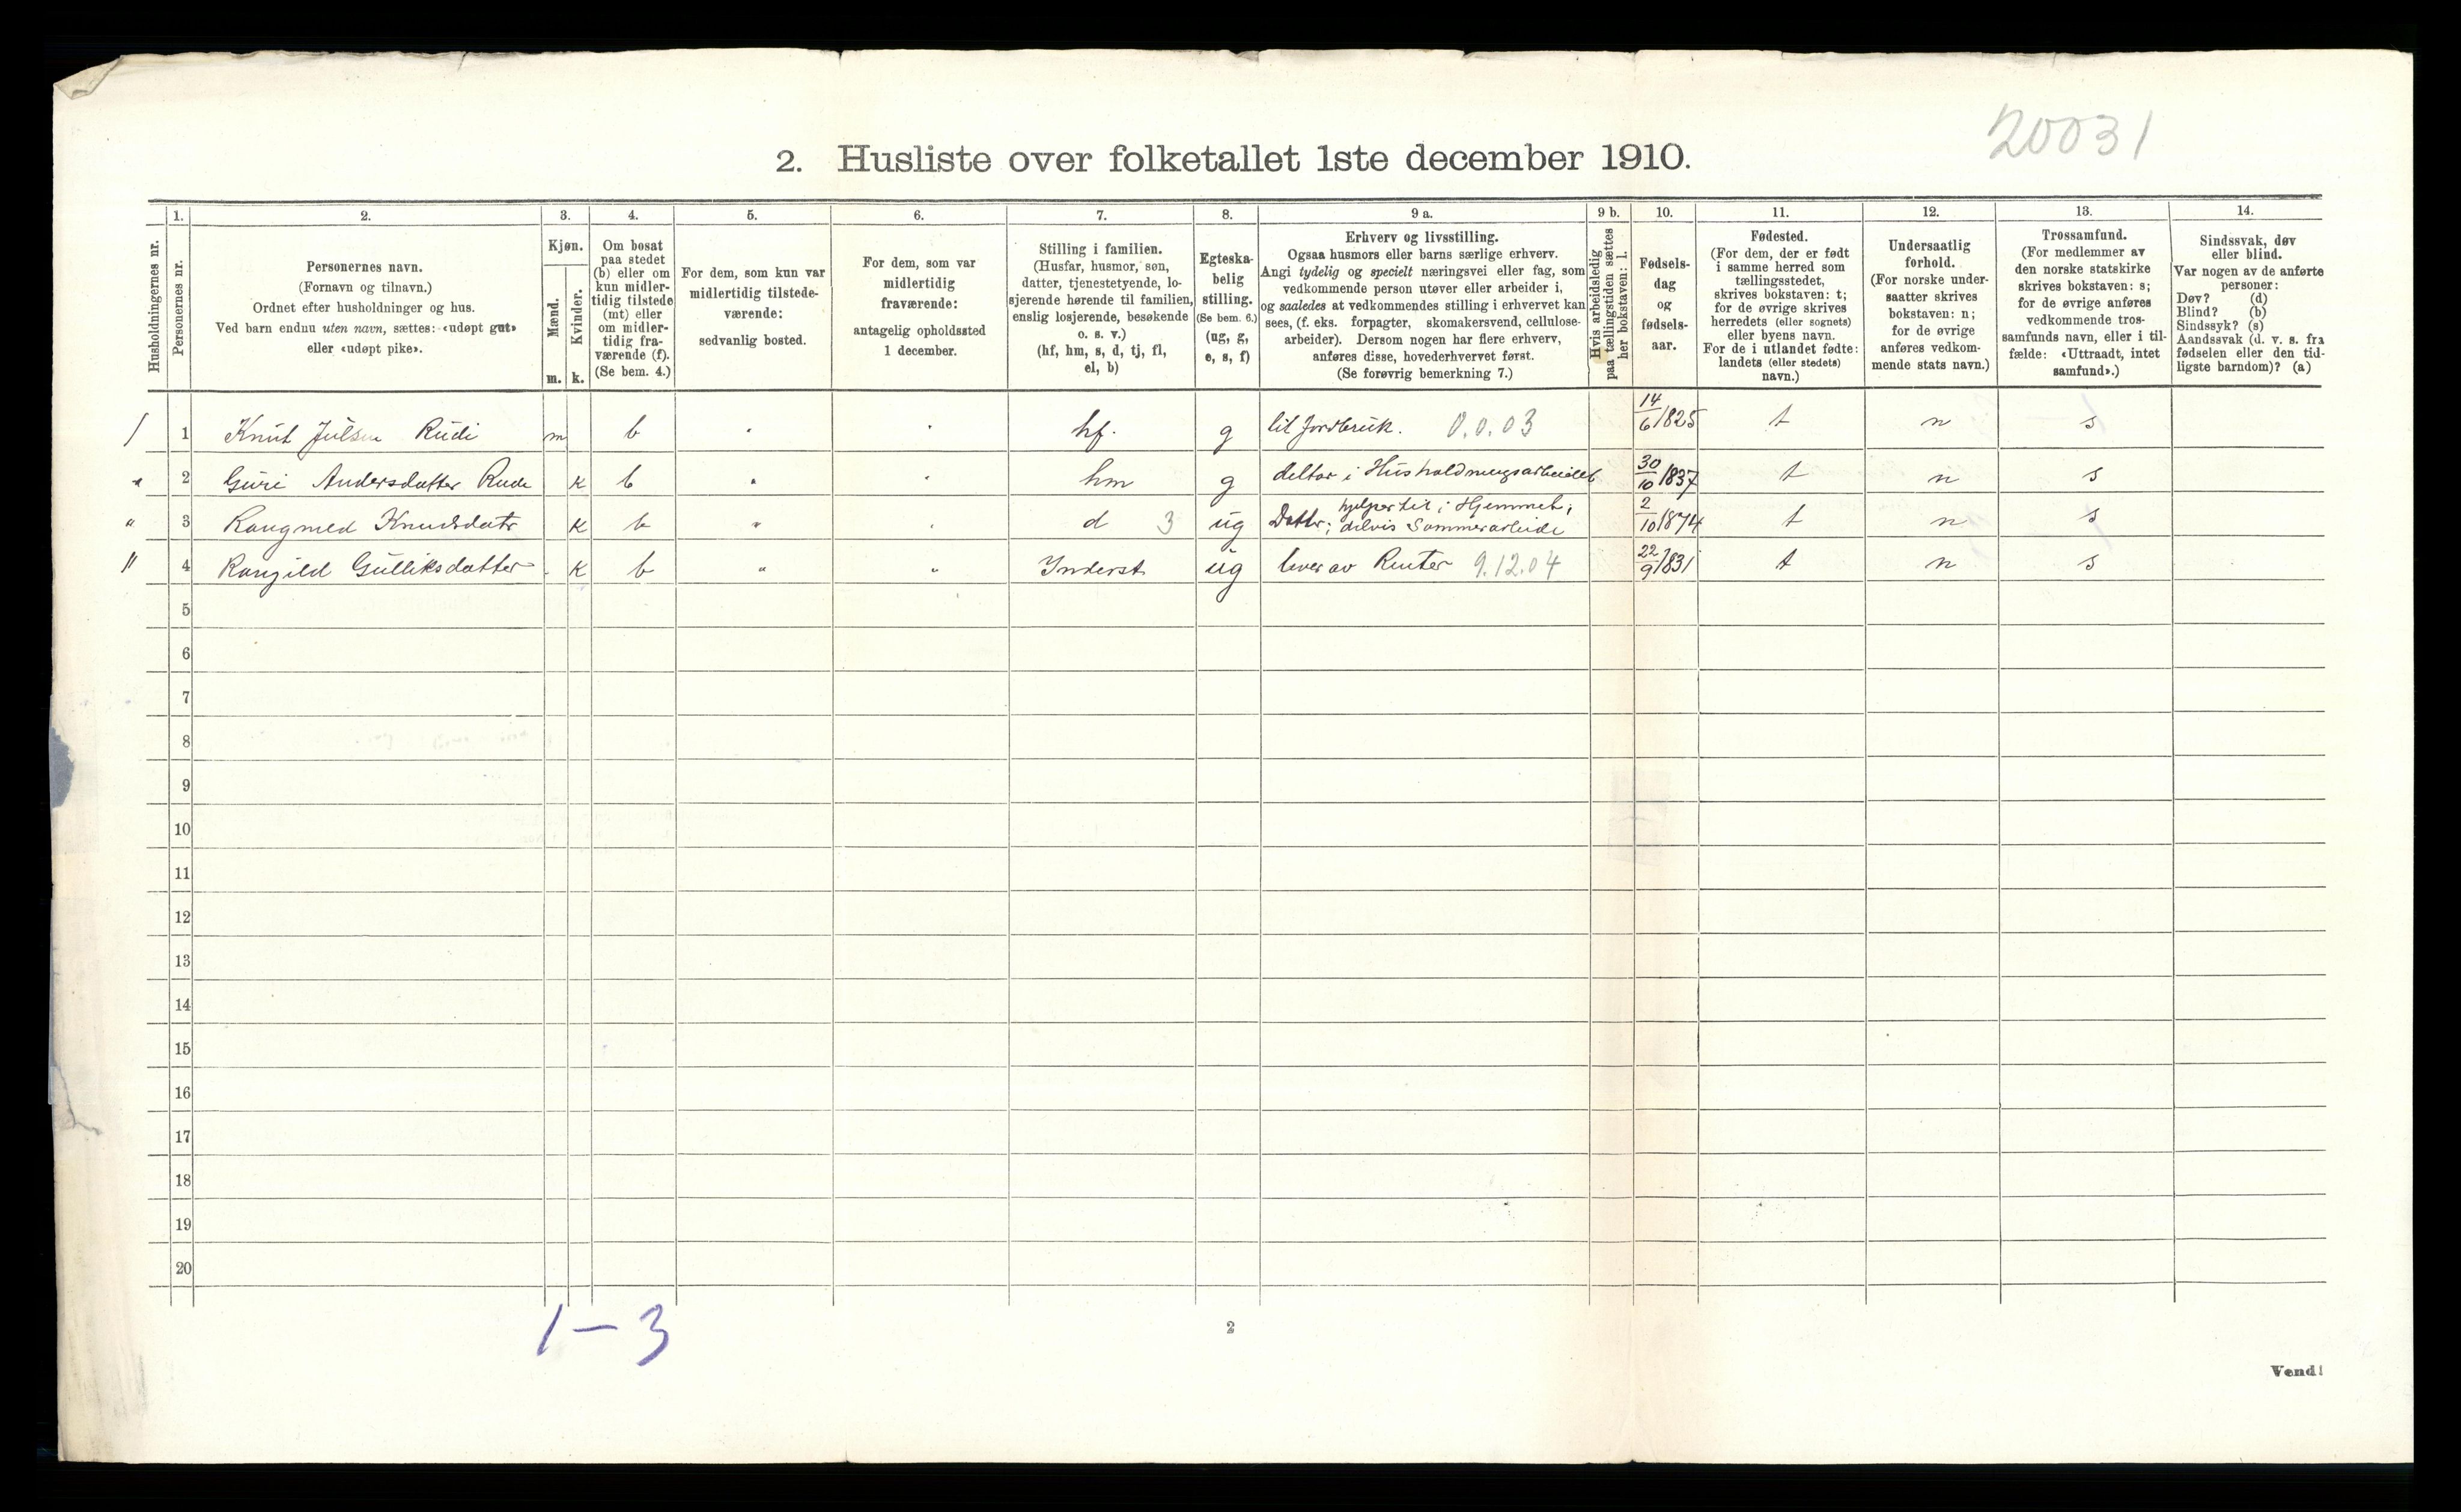 20031
2. Husliste over folketallet 1ste december 1910.
Husholdningernes nr.
1.
Personernes nr.
2.
Personernes navn.
(Fornavn og tilnavn.)
Ordnet efter husholdninger og hus.
Ved barn endnu uten navn, sættes: «udøpt gut»
eller «udøpt pike».
3.
Kjøn.
Mænd.
m.
Kvinder.
k.
4.
Om bosat
paa stedet
(b) eller om
kun midler-
tidig tilstede
(mt) eller
om midler-
tidig fra-
værende (f).
(Se bem. 4.)
5.
For dem, som kun var
midlertidig tilstede-
værende:
sedvanlig bosted.
6.
For dem, som var
midlertidig
fraværende:
antagelig opholdssted
1 december.
7.
Stilling i familien.
(Husfar, husmor, søn,
datter, tjenestetyende, lo-
sjerende hørende til familien,
enslig losjerende, besøkende
o. s. v.)
(hf, hm, s, d, tj, fl,
el, b)
8.
Egteska-
belig
stilling.
(Se bem. 6.)
(ug, g,
e, s, f)
9 a.
Erhverv og livsstilling.
Ogsaa husmors eller barns særlige erhverv.
Angi tydelig og specielt næringsvei eller fag, som
vedkommende person utøver eller arbeider i,
og saaledes at vedkommendes stilling i erhvervet kan
sees, (f. eks. forpagter, skomakersvend, cellulose-
arbeider). Dersom nogen har flere erhverv,
anføres disse, hovederhvervet først.
(Se forøvrig bemerkning 7.)
9 b.
Hvis arbeidsledig
paa tællingstiden sættes
her bokstaven: l.
10.
Fødsels-
dag
og
fødsels-
aar.
11.
Fødested.
(For dem, der er født
i samme herred som
tællingsstedet,
skrives bokstaven: t;
for de øvrige skrives
herredets (eller sognets)
eller byens navn.
For de i utlandet fødte:
landets (eller stedets)
navn.)
12.
Undersaatlig
forhold.
(For norske under-
saatter skrives
bokstaven: n;
for de øvrige
anføres vedkom-
mende stats navn.)
13.
Trossamfund.
(For medlemmer av
den norske statskirke
skrives bokstaven: s;
for de øvrige anføres
vedkommende tros-
samfunds navn, eller i til-
fælde: «Uttraadt, intet
samfund».)
14.
Sindssvak, døv
eller blind.
Var nogen av de anførte
personer:
Døv? (d)
Blind? (b)
Sindssyk? (s)
Aandssvak (d. v. s. fra
fødselen eller den tid-
ligste barndom)? (a)
/ 1 Knut Julsen Rudi m b " " hf. g lit Jordbruk. 0.0.03 14/6 1825 t n s
" 2 Guri Andersdatter Rudi k b " " hm g deltar i Husholdningsarbeidet 30/10 1837 t n s
" 3 Rangned Knudsdatr k b " " d 3 ug Dattr; hjelper til i Hjemmet; delvis Sommerarbeide 2/10 1874 t n s
" 4 Rangild Gulliksdatter k b " " Inderst ug lever av Renter 9.12.04 22/9 1831 t n s
5
6
7
8
9
10
11
12
13
14
15
16
17
18
19
20
1-3
2
Vend!